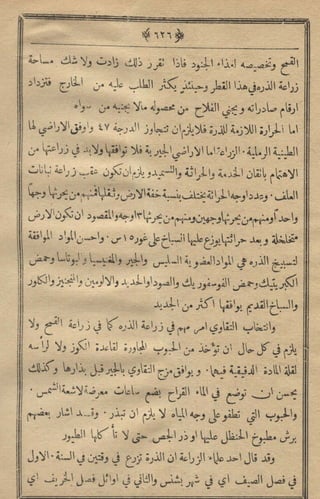 ﴿ ٦٢٦ ﴾
القمح وتخصيصه لغذاء الجنود فاذا تقرر ذلك زادت ولا شك مساحة
زراعة الذره في هذا القطر وحينئذ يكثر الطلب عليه من الخارج فتزداد
ارقام صادراته ويجني الفلاح من محصوله مالا يجنيه من سواه
اما الحرارة اللازمة للذرة فلا يلزم ان تتجاوز الدرجه ٤٧ واوفق الاراضي لها
الطينية الرملية. الزراعة اما الاراضي الجيرية فلا توافقها ولا بد في زراعتها من
الاهتمام باتقان الخدمة والحراثة والتسميد ويلزم ان تكون عقب زراعة نباتات
العلف. وعدد اوجه الحراثة يختلف بنسبة خفة الارض وثقلها فمنهم من يحرثها وجهاً
واحداً ومنهم من يحرثها وجهين ومنهم من يحرثها ٣ اوجه والمقصود ان تكون الارض
متخلخلة وبعد حراثتها يوزع عليها اسباخ على غور ١٥ س. واحسن المواد الموافقة
لتسبيخ الذره هي المواد العضوية السليس والجير والمغنيسيا والبوتاسا وحمض
الكبريتيك وحمض الفوسفوريك والصودا والحديد والالومين والمنجنيز والكلور
والسباخ القديم يوافقها اكثر من الجديد
وانتخاب التقاوي امر مهم في زراعة الذره كما في زراعة القمح ولا
يلزم في كل حال ان تؤخذ من الحبوب المجاورة لقاعدة الكوز ولا لرأسه
لقلة المادة الدقيقية فيهما. ويوافق مزج التقاوي بالجير قبل بذارها وكذلك
يحسن ان توضع في الماء القراح بضع ساعات معرضة لاشعة الشمس.
والحبوب التي تطفو على وجه المياه لا يلزم ان تبذر. وقد اشار بعضهم
برش مطبوخ الحنظل عليها او ذر الجص حتى لا تأكلها الطيور
وقد قال احد علماء الزراعة ان الذرة تزرع في وقتين في السنة. الاول
في فصل الصيف اي في شهر بشنس والثاني في اوائل فصل الخريف اي